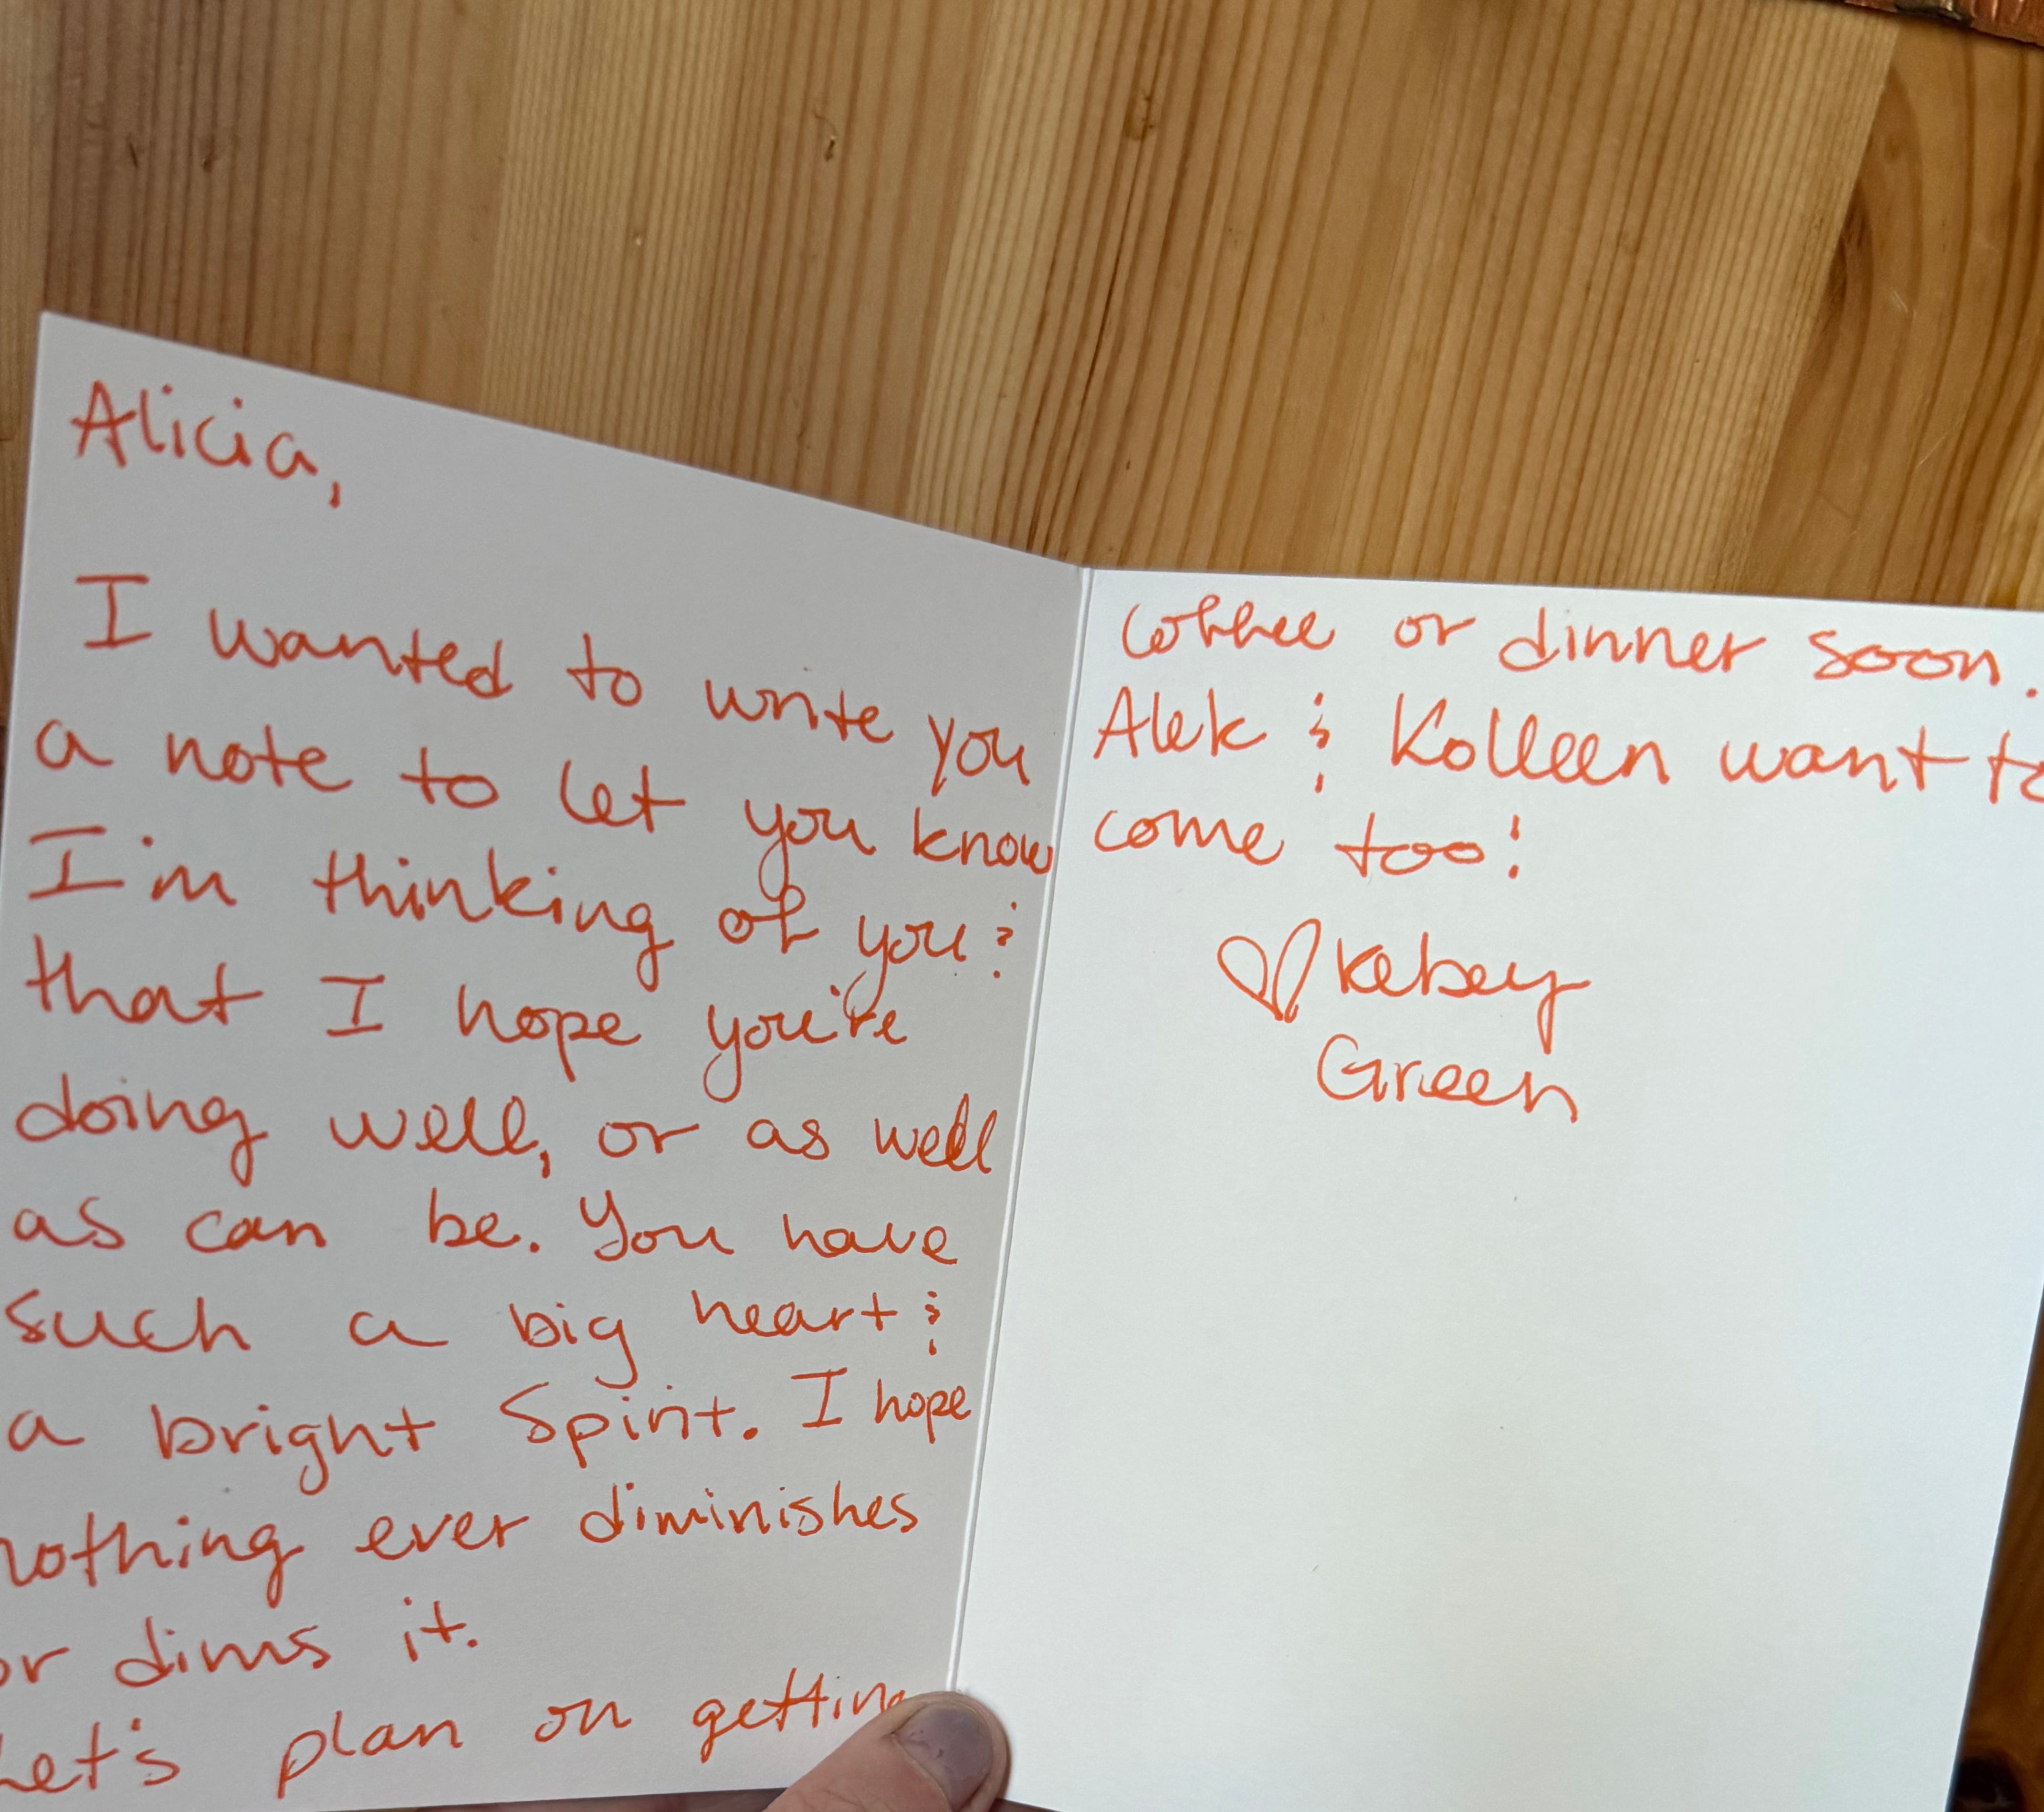 Alicia,
I wanted to write you
a note to let you know
I'm thinking of you &
that I hope you're
doing well, or as well
as can be. You have
such a big heart &
a bright spirit. I hope
nothing ever diminishes
or dims it.
Let's plan on getting
coffee or dinner soon.
Alek & Kolleen want to
come too!
♡ Kelsey
Green